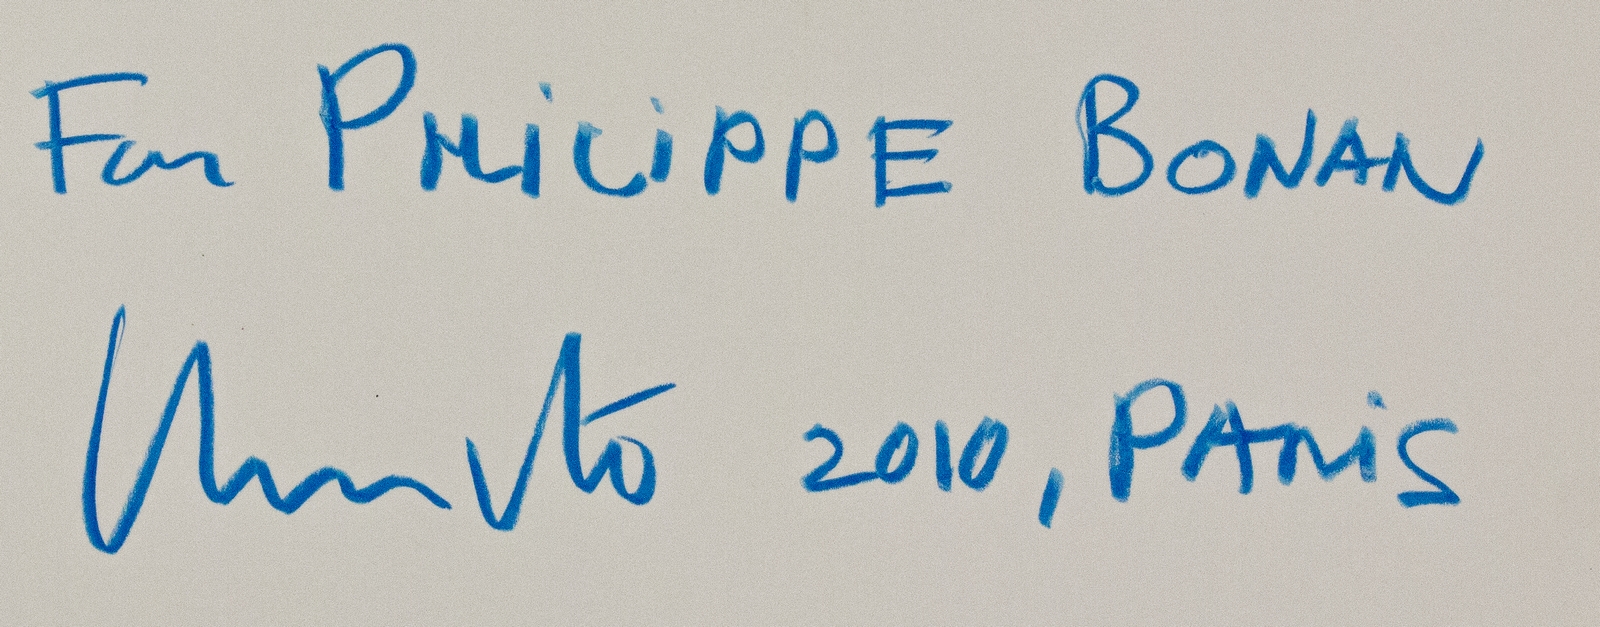 For PHiLiPPE BONAN
2010, PARiS